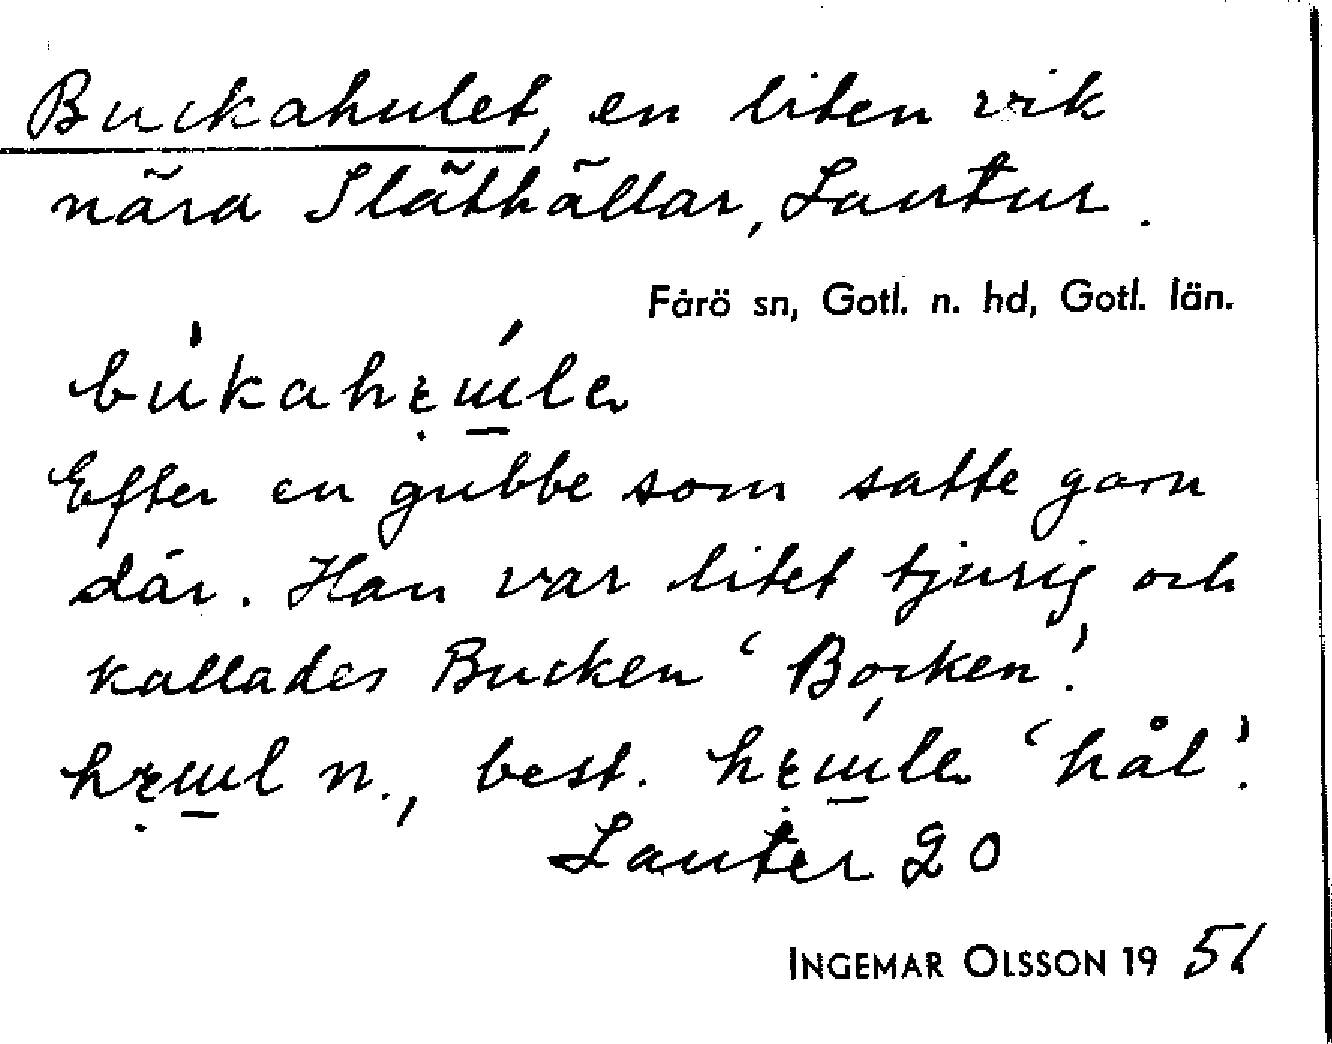 Buckahulet, en liten vik
nära Släthällar, Lautur.
Fårö sn, Gotl. n. hd, Gotl. län.
Efter en gubbe som satte garn
där. Han var litet tjurig och
kallades Bucken ‘Bocken’.
n., best. ‘hål’.
Lauter 20
INGEMAR OLSSON 19 51